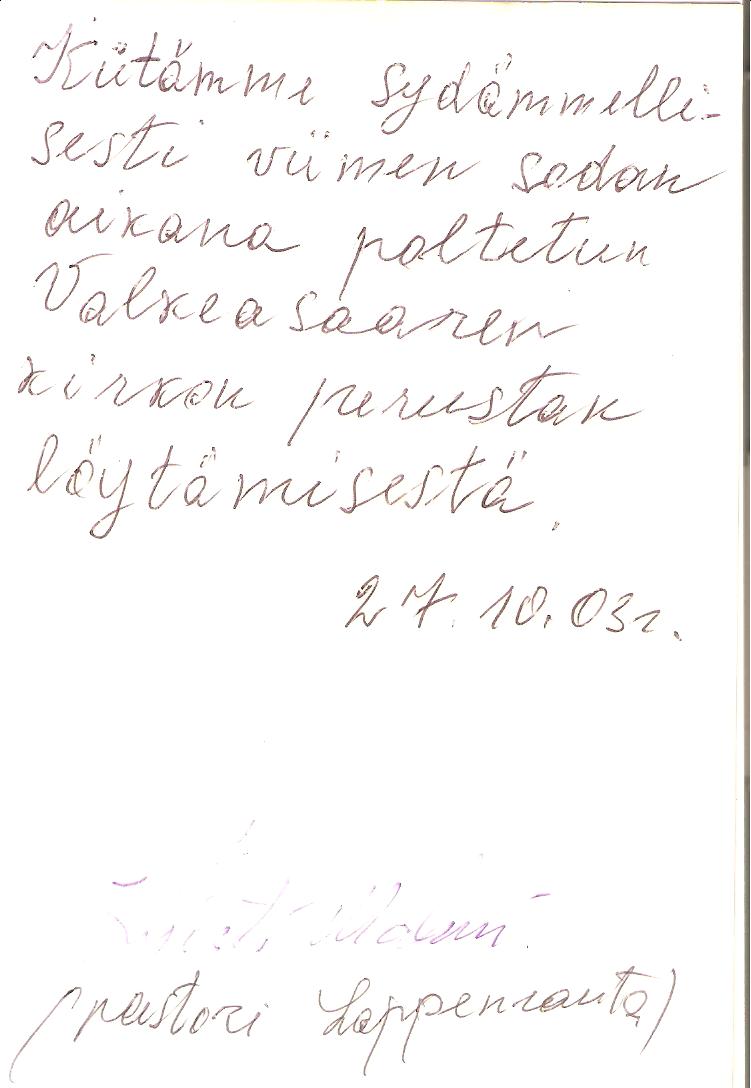 Kiitämme sydämmelli-
sesti viimen sodan
aikana poltetun
Valkeasaaren
kirkon perustan
löytämisestä.
27.10.03г.
(pastori Lappenranta)